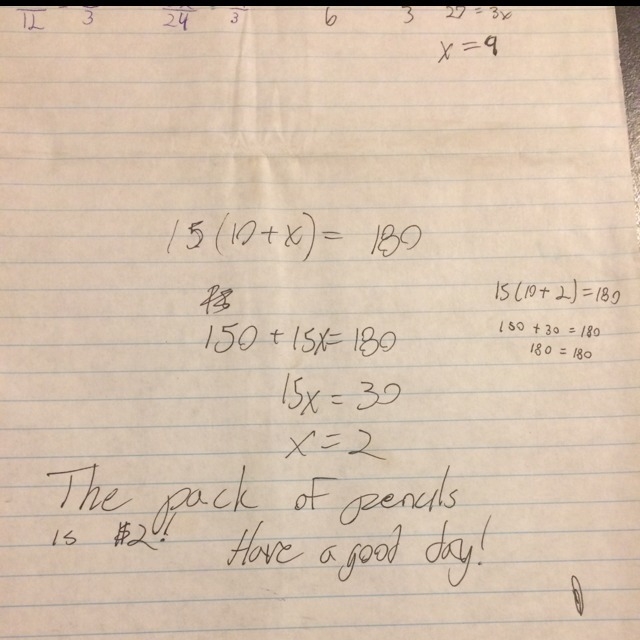 12 3 24 3 6 3 27 = 3x
x = 9
15(10+x) = 180
150 + 15x = 180
15x = 30
x = 2
15(10+2) = 180
150 + 30 = 180
180 = 180
The pack of pencils
is $2! Have a good day!